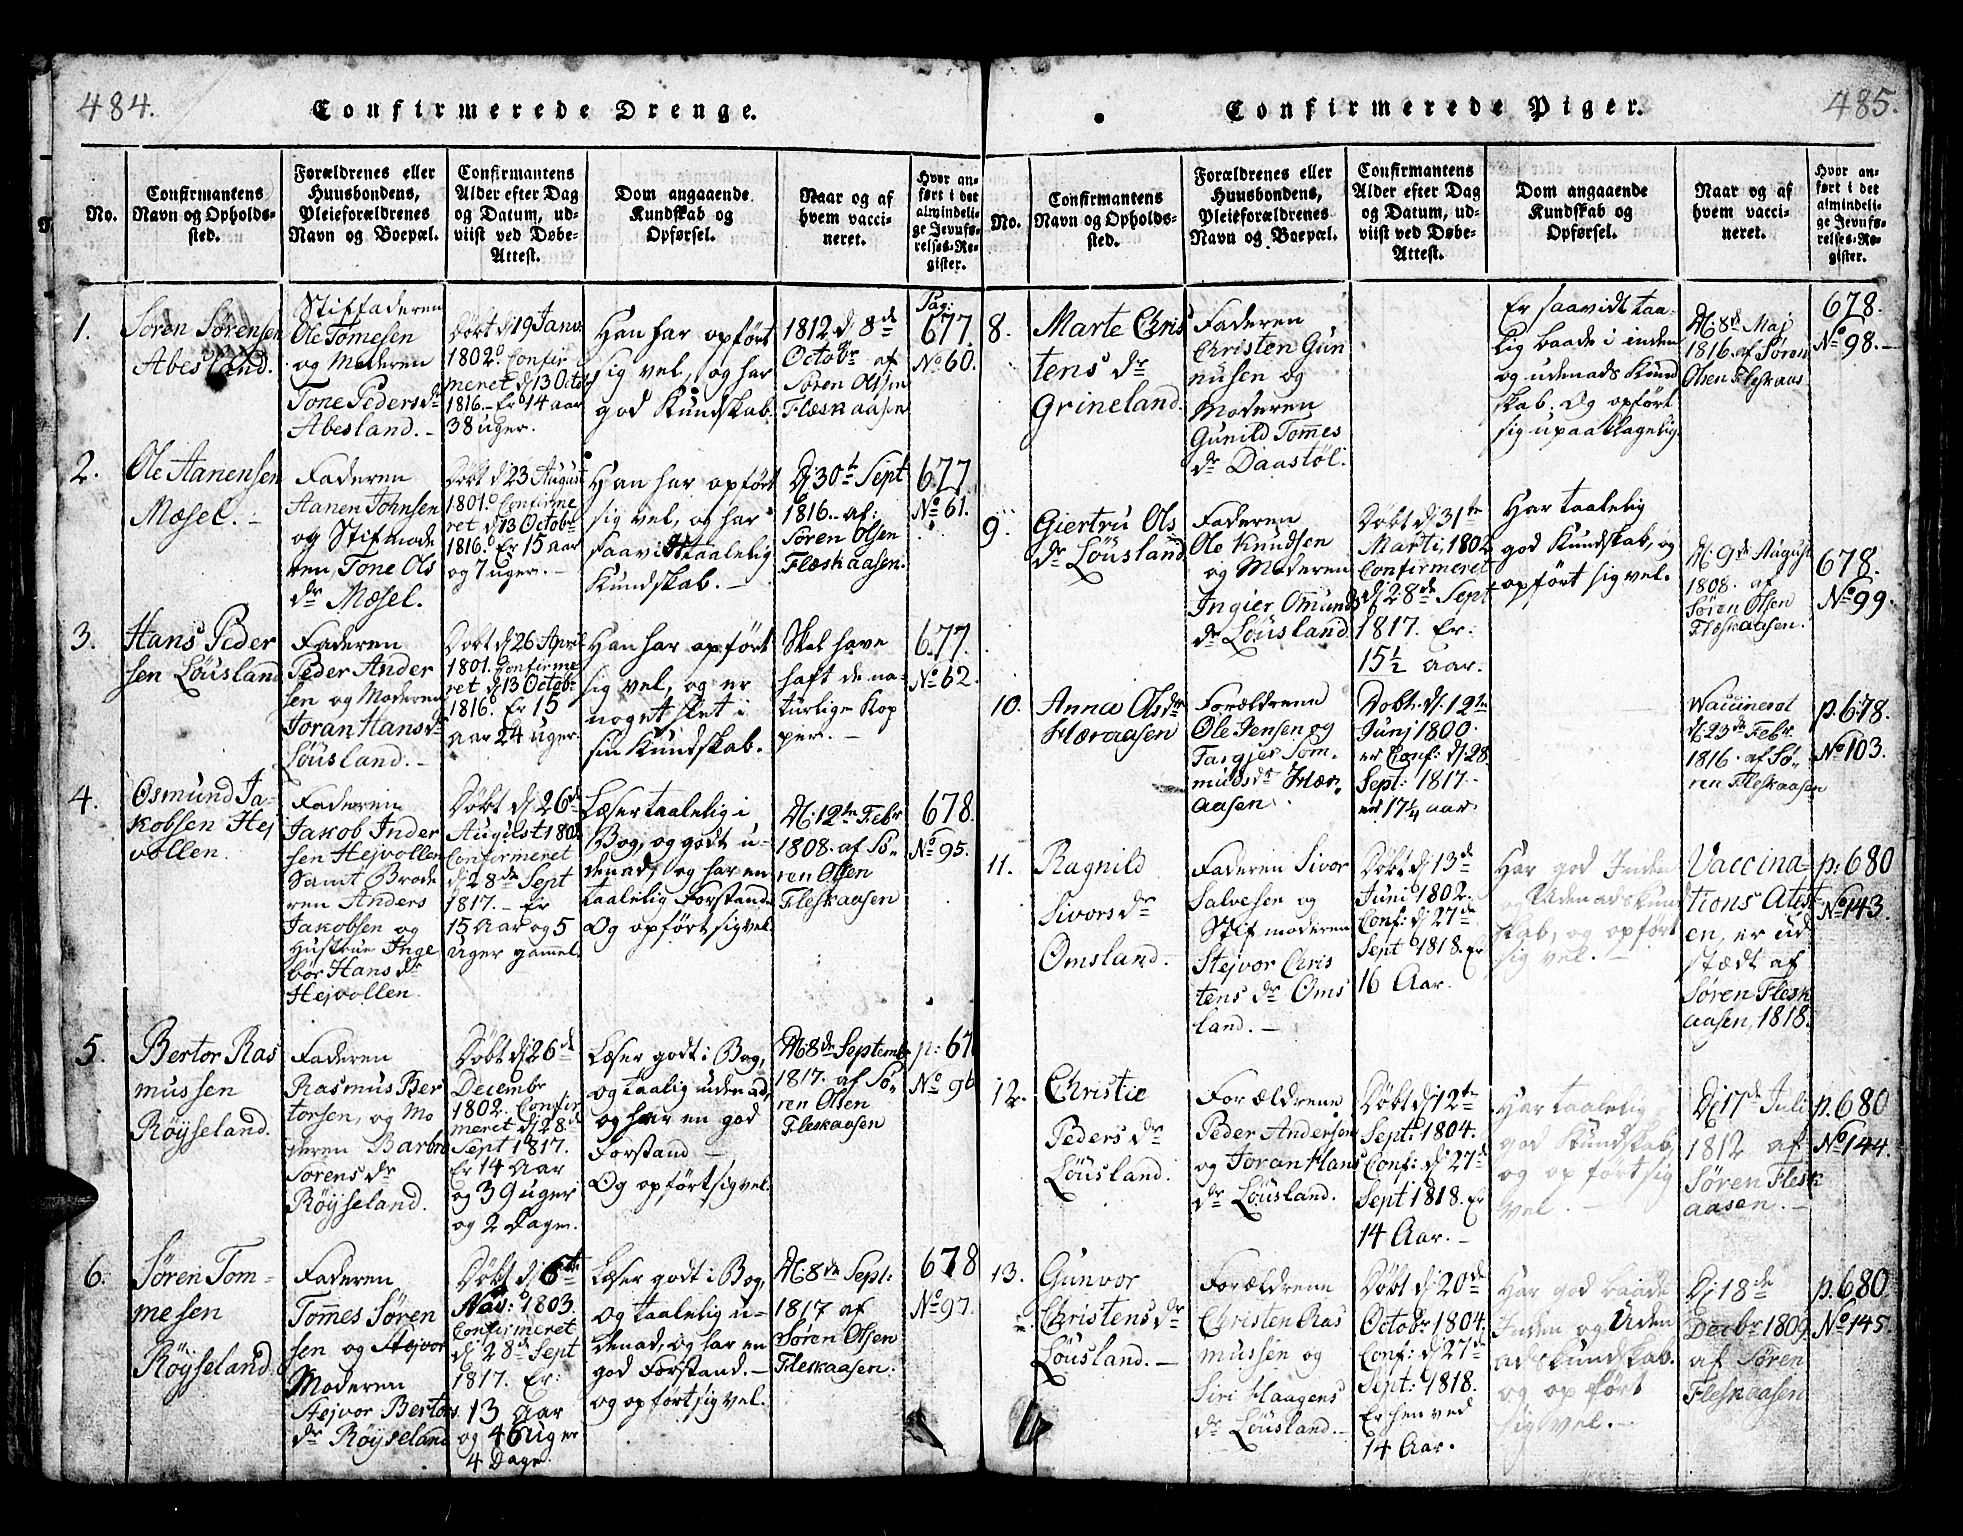 484.
Confirmerede Drenge.
No.
Confirmantens
Navn og Opholds-
sted.
Forældrenes eller
Huusbondens,
Pleieforældrenes
Navn og Boepæl.
Confirmantens
Alder efter Dag
og Datum, ud-
viist ved Døbe-
Attest.
Dom angaaende
Kundskab og
Opførsel.
Naar og af
hvem vacci-
neret.
Hvor an-
ført i det
almindeli-
ge Jevnfø-
relses-Re-
gister.
1.
Søren Sørensen
Abesland.
Stiffaderen
Ole Tomesen
og Moderen
Tone Peders dr
Abesland. -
Døbt d 19 Janv
1802. Confir
meret d 13 Octor
1816. - Er 14 aar
38 uger.
Han har opført
sig vel, og har
god Kundskab.
1812. d 8de
Octobr af
Søren Olsen
Flæskaasen
Pag:
677.
No 60.
2.
Ole Aanensen
Mæsel. -
Faderen
Aanen Johnsen
og Stifmode
ren, Tone Ols
dr Mæsel.
Døbt d 23 August
1801. Confirme
ret d 13 Octobr
1816. Er 15 aar
og 7 uger. -
Han har opført
sig vel, og har
saavidt taalelig
Kundskab. -
Dj 30t Sept
1816. - af:
Søren Olsen
Flæskaasen.
677.
No 61.
3.
Hans Peder
sen Løusland
Faderen
Peder Ander
sen og Moderen
Joran Hans dr
Løusland. -
Døbt d 26 April
1801. Confirme
ret d 13 Octobr
1816. Er 15
aar 24 uger.
Han har opført
sig vel, og er
noget slet i
sin Kundskab.
Skal have
haft de na-
turlige Kop
per. -
677.
No 62.
4.
Osmund Ja-
kobsen Hej
vollen.
Faderen
Jakob Ander
sen Hejvollen
Samt Brode
ren Anders
Jakobsen og
Hustrue Inge
bor Hans dr
Hejvollen.
Døbt dj 26de
August 1802
Confirmeret
dj 28de Sept
1817. - Er
15 Aar og 5
uger gammel.
Læser taalelig i
Bog, og godt u-
denad, og har en
taalelig Forstand.
Og opført sig vel.
Dj. 12te Febr
1808. af Sø-
ren Olsen
Fleskaasen
678.
No 95.
5.
Bertor Ras
mussen
Røysseland.
Faderen
Rasmus Ber
torsen, og Mo
deren Barbro
Sørens dr
Røysseland.
Døbt dj 26de
Decembr
1802. Confir
meret dj 28de
Sept 1817.
Er 14 Aar
og 39 uger
og 2 Dage.
Læser godt i Bog,
og taalig udenad,
og har en god
Forstand -
Og opført sig vel.
Dj 8de Septembr
1817. af Sø-
ren Olsen
Fleskaasen
p: 67
No 96
6.
Søren Tom-
mesen
Røysseland.
Faderen
Tommes Søren
sen og Stejvor
Moderen
Stejvor Bertors
dr Røysseland
Døbt dj 6te
Nov: 1803.
Confirmeret
dj 28de Sept
1817. Er:
13 Aar
og 46 Uger
4 Dage.
Læser godt i Bog,
og taalelig u-
denad, og har en
god Forstand. -
og opført sig vel.
Dj. 8de Sept:
1817 af
Søren Olsen
Fleskaasen.
678
No 97.
485.
Confirmerede Piger.
No.
Confirmantens
Navn og Opholds-
sted.
Forældrenes eller
Huusbondens,
Pleieforældrenes
Navn og Boepæl.
Confirmantens
Alder efter Dag
og Datum, ud-
viist ved Døbe-
Attest.
Dom angaaende
Kundskab og
Opførsel.
Naar og af
hvem vacci-
neret.
Hvor an-
ført i det
almindeli-
ge Jevnfø-
relses-Re-
gister.
8.
Marte Chris
tens dr
Grineland.
Faderen
Christen Gun
nusen og
Moderen
Gunild Tommes
dr Daastøl.
Er saavidt taa-
lig baade i inden
og udenads Kund
skab. Og opført
sig upaaklagelig.
Dj. 8de Maj
1816. af Søren
Olsen Fleskaas
678.
No 98. -
9.
Giertru Ols
dr Løusland
Faderen
Ole Knudsen
og Moderen
Ingier Omunds
dr Løusland
Døbt dj 31te
Marti. 1802
Confirmeret
dj 28de Sept
1817. Er:
15 1/2 aar.
Har taalelig
god Kundskab, og
opført sig vel.
Dj. 9de August
1808. af
Søren Olsen
Fleskaasen.
678.
No 99.
10.
Anna Olsdr
Hæraasen
Forældrene
Ole Jensen og
Targjer Som
mundsdr Hær-
aasen.
Døbt. dj. 12te
Junj 1800.
er Conf: dj. 28
Sept: 1817. -
er 17 1/4 aar.
Waccinerot
dj. 23de Febr
1816. af Sø-
ren Fleskaasen
p. 678.
No 103.
11.
Ragnild
Sivors dr
Omsland. -
Faderen Sivor
Salvesen og
Stifmoderen
Stejvor Chris
tens dr Oms
land. -
Døbt dj 13de
Juni 1802.
Conf: dj 27de
Sept 1818. Er
16 Aar.
Har god Inden
og Udenadskund
skab, og opført
sig vel. -
Vaccina-
tions Atest
en, er ud
stædt af
Søren Flesk
aasen, 1818.
p: 680
No 143.
12.
Christie
Peders dr
Løusland.
Forældrene
Peder Andersen
og Joran Hans
dr Løusland.
Døbt dj 12te
Sept: 1804.
Conf: dj 27de
Sept 1818. Er
14 Aar. -
Har taalelig
god Kundskab,
og opført sig
vel. -
Dj 17de Juli
1812 af
Søren Flesk
aasen. -
p. 680
No 144.
13.
Gunvor
Christens dr
Løusland. -
Forældrene
Christen Ras
mussen og
Siri Haagens
dr Løusland. -
Døbt dj 20de
Octobr 1804.
Conf: dj 27de
Sept: 1818.
Er hen ved
14 Aar.
Har god baade
Inden og Uden
adskundskab.
og opført
sig vel. -
Dj 18de
Decbr 1809.
af Søren
Fleskaasen
p. 680
No 145.